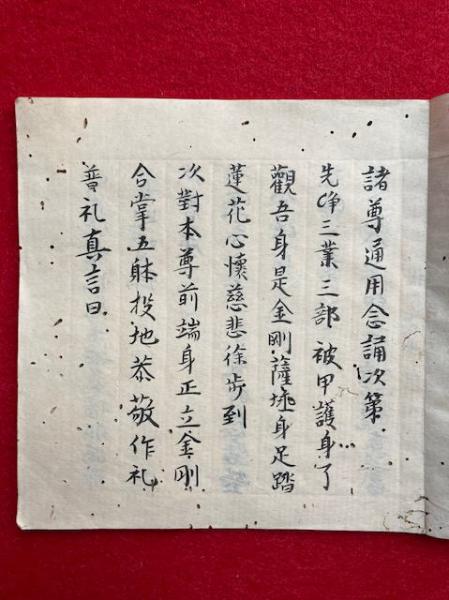 諸尊通用念誦次第
先净三業三部被甲護身了
觀吾身是金剛薩埵身足踏
蓮花心懷慈悲徐歩到
次對本尊前端身正立金剛
合掌五躰投地恭敬作礼
普礼真言曰